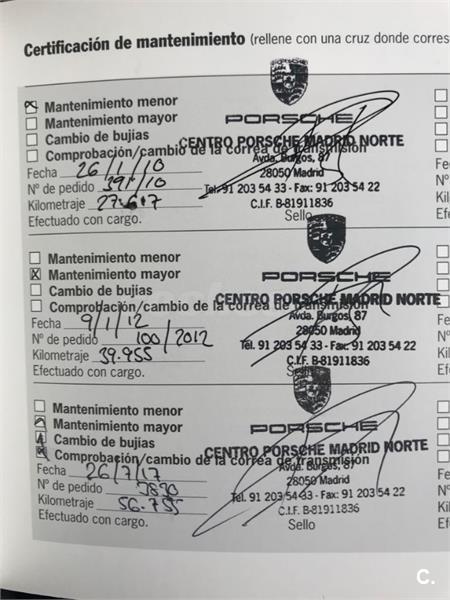 Certificación de mantenimiento (rellene con una cruz donde corres
Mantenimiento menor
Mantenimiento mayor
Cambio de bujías
Comprobación/cambio de la correa de transmisión
Fecha 26/1/10
Nº de pedido 391/10
Kilometraje 27.617
Efectuado con cargo.
PORSCHE
CENTRO PORSCHE MADRID NORTE
Avda. Burgos, 87
28050 Madrid
Tel. 91 203 54 33 - Fax: 91 203 54 22
C.I.F. B-81911836
Sello
Mantenimiento menor
Mantenimiento mayor
Cambio de bujías
Comprobación/cambio de la correa de transmisión
Fecha 9/1/12
Nº de pedido 100/2012
Kilometraje 39.955
Efectuado con cargo.
PORSCHE
CENTRO PORSCHE MADRID NORTE
Avda. Burgos, 87
28050 Madrid
Tel. 91 203 54 33 - Fax: 91 203 54 22
C.I.F. B-81911836
Sello
Mantenimiento menor
Mantenimiento mayor
Cambio de bujías
Comprobación/cambio de la correa de transmisión
Fecha 26/7/17
Nº de pedido
Kilometraje 56.755
Efectuado con cargo.
PORSCHE
CENTRO PORSCHE MADRID NORTE
Avda. Burgos, 87
28050 Madrid
Tel. 91 203 54 33 - Fax: 91 203 54 22
C.I.F. B-81911836
Sello
Fe
Nº
Kil
Efe
Fe
Nº
Kil
Efe
C.